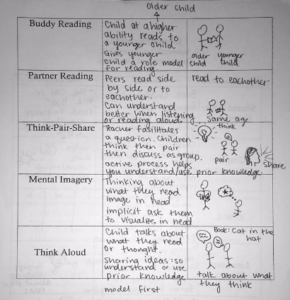 older child
Buddy Reading
Child at a higher
ability reads to
a younger child.
Gives younger
child a role model
for reading.
older younger
child child
Partner Reading
Peers read side
by side or to
eachother.
Can understand
better when listening
or reading aloud.
read to eachother
same age
Think-Pair-Share
Teacher facilitates
a question. Children
think then pair
then discuss as group.
active process helps
you understand/use prior knowledge
think
pair
share
Mental Imagery
Thinking about
what they read
Image in head
implicit ask them
to visualize in head
Think Aloud
Child talks about
what they read
or thought.
sharing ideas: so
understand or use
prior knowledge
model first
Book: Cat in the
hat
talk about what
they think